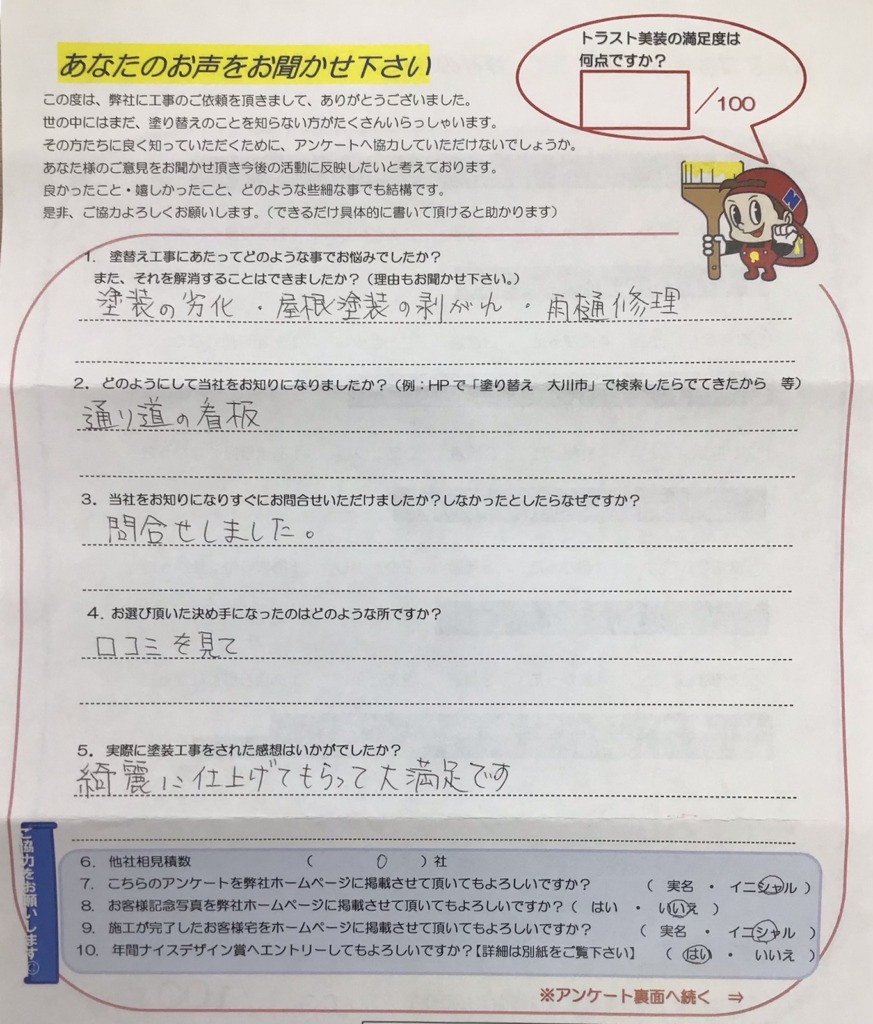 あなたのお声をお聞かせ下さい
トラスト美装の満足度は
何点ですか？
／100
この度は、弊社に工事のご依頼を頂きまして、ありがとうございました。
世の中にはまだ、塗り替えのことを知らない方がたくさんいらっしゃいます。
その方たちに良く知っていただくために、アンケートへ協力していただけないでしょうか。
あなた様のご意見をお聞かせ頂き今後の活動に反映したいと考えております。
良かったこと・嬉しかったこと、どのような些細な事でも結構です。
是非、ご協力よろしくお願いします。（できるだけ具体的に書いて頂けると助かります）
N
1. 塗替え工事にあたってどのような事でお悩みでしたか？
また、それを解消することはできましたか？（理由もお聞かせ下さい。）
塗装の劣化・屋根塗装の剥がれ・雨樋修理
2. どのようにして当社をお知りになりましたか？（例：HPで「塗り替え 大川市」で検索したらでてきたから 等）
通り道の看板
3. 当社をお知りになりすぐにお問合せいただけましたか？しなかったとしたらなぜですか？
問合せしました。
4. お選び頂いた決め手になったのはどのような所ですか？
口コミを見て
5. 実際に塗装工事をされた感想はいかがでしたか？
綺麗に仕上げてもらって大満足です
ご協力をお願いします☺
6. 他社相見積数 （ 0 ）社
7. こちらのアンケートを弊社ホームページに掲載させて頂いてもよろしいですか？ （ 実名 ・ イニシャル ）
8. お客様記念写真を弊社ホームページに掲載させて頂いてもよろしいですか？（ はい ・ いいえ ）
9. 施工が完了したお客様宅をホームページに掲載させて頂いてもよろしいですか？ （ 実名 ・ イニシャル ）
10. 年間ナイスデザイン賞へエントリーしてもよろしいですか？【詳細は別紙をご覧下さい】 （ はい ・ いいえ ）
※アンケート裏面へ続く ⇒